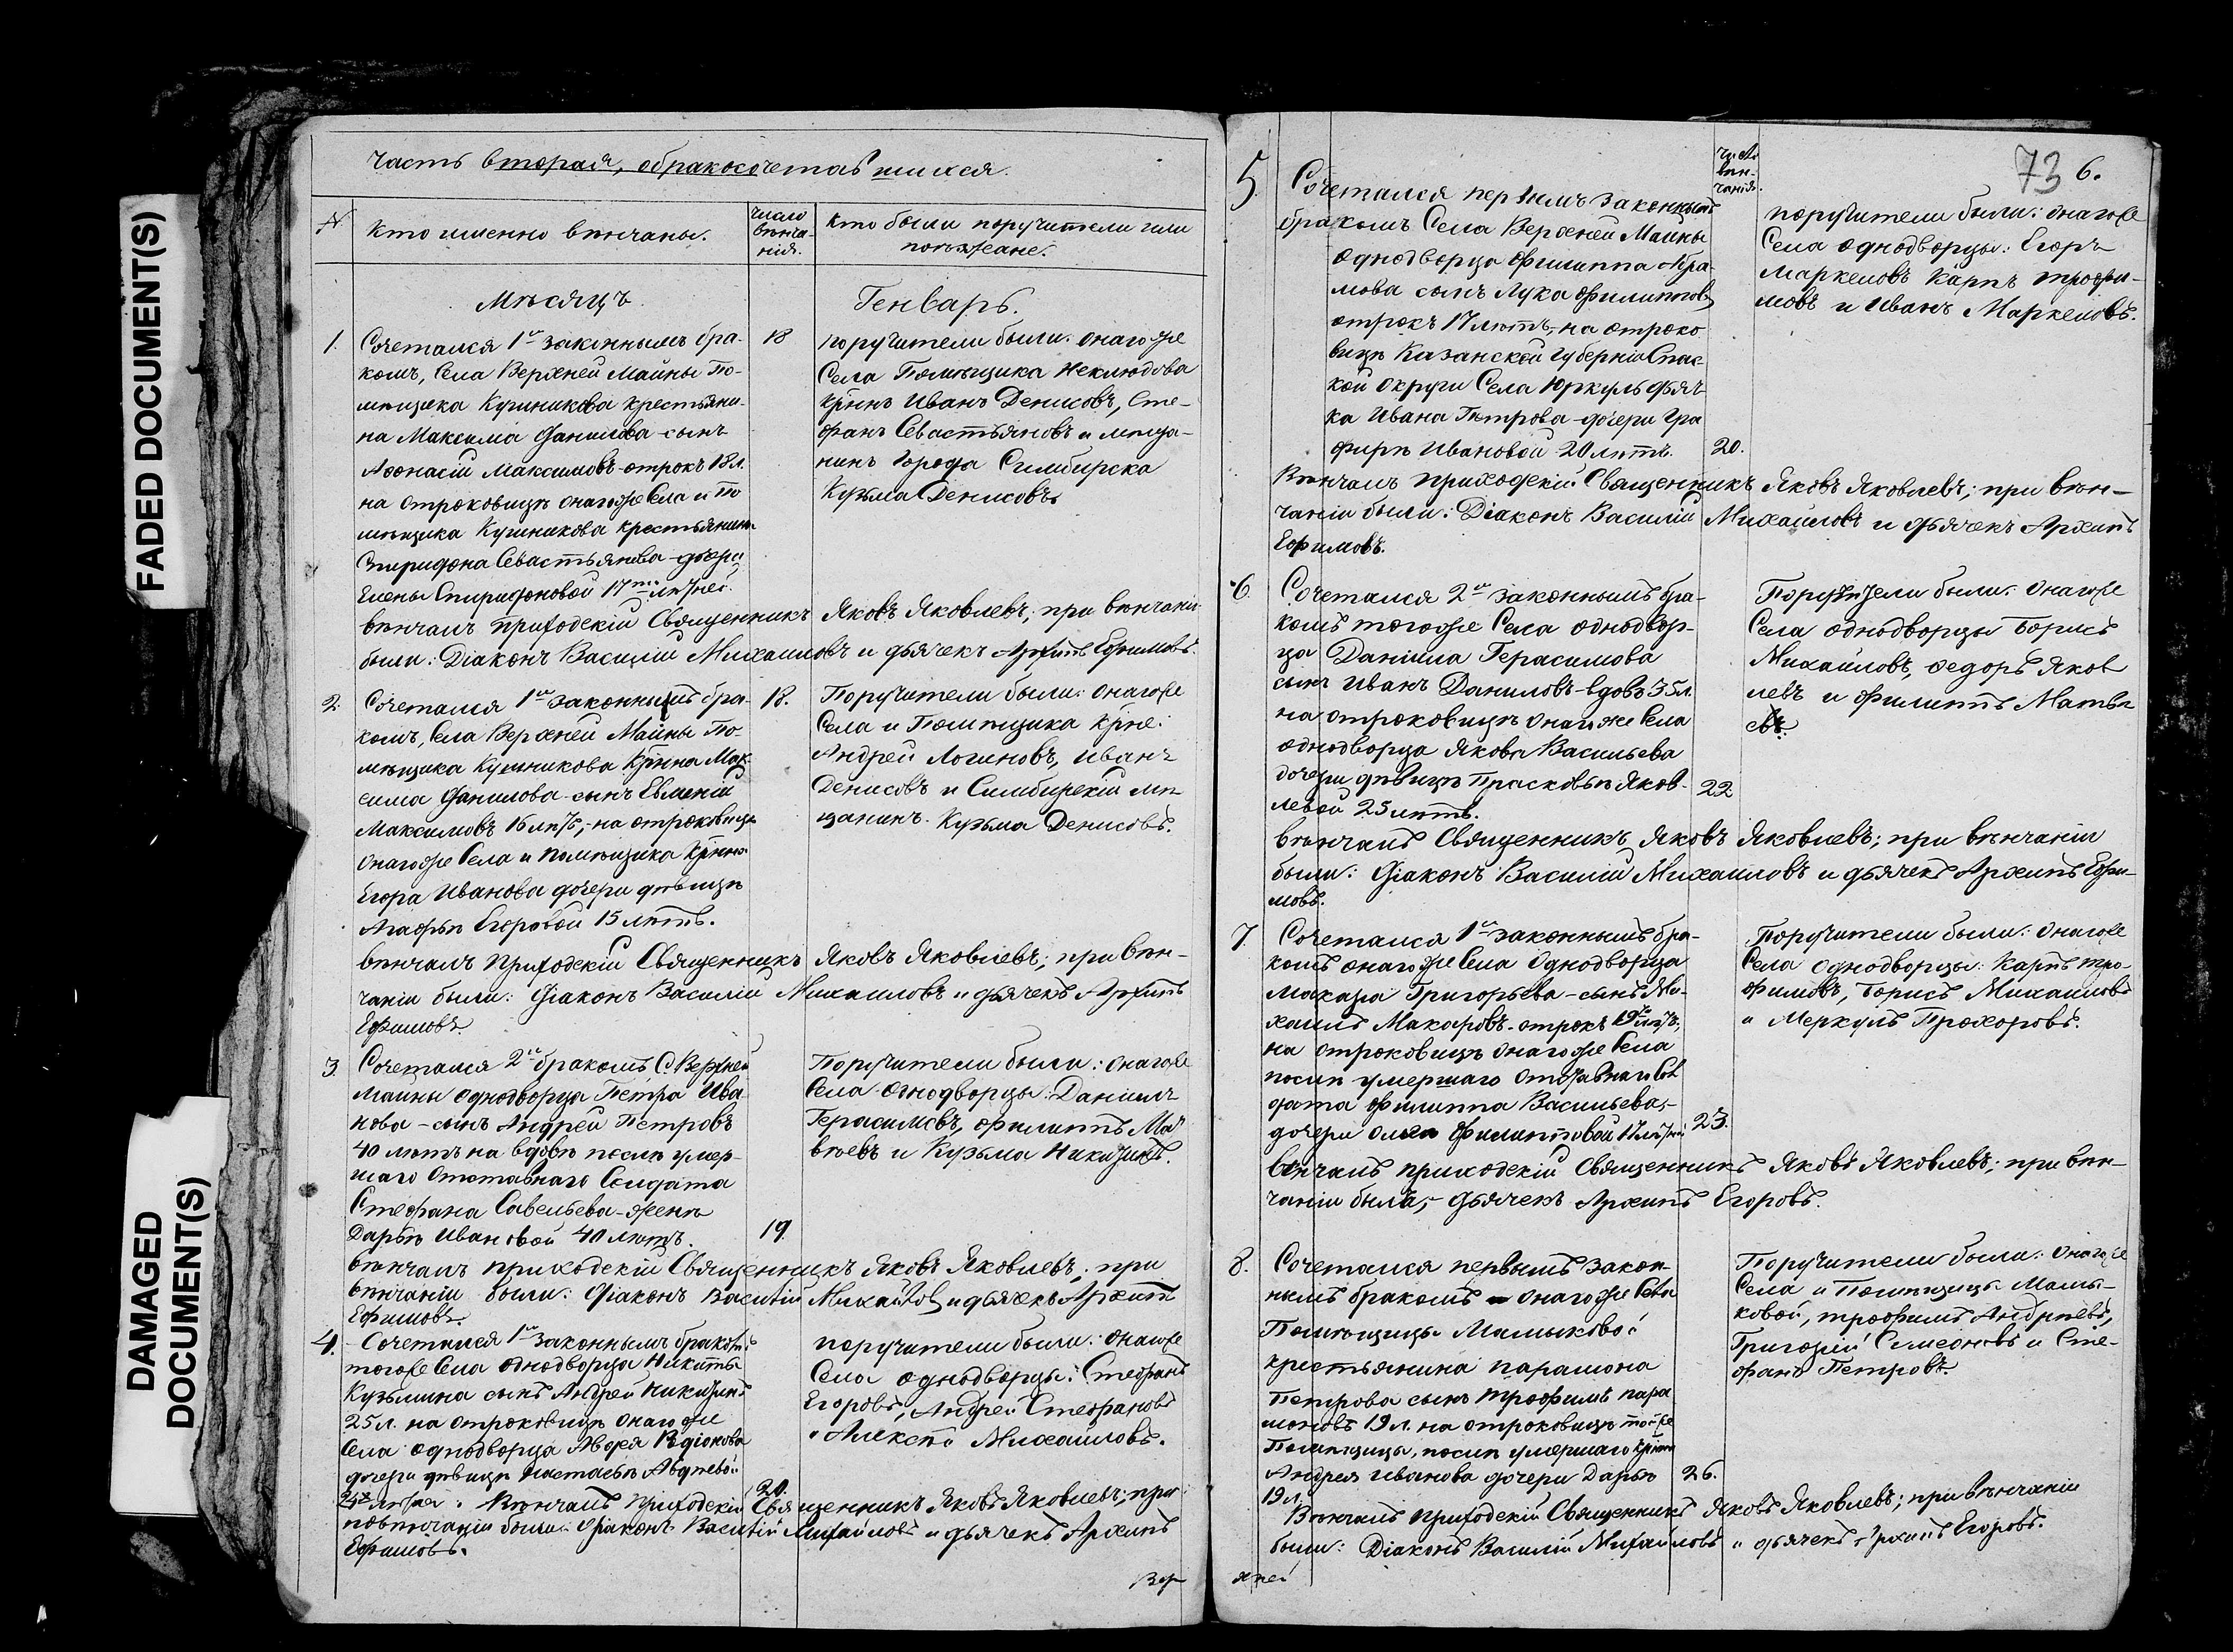 FADED DOCUMENT(S)
DAMAGED
DOCUMENT(S)
Часть вторая, обракосочетавшихся.
№
Кто именно вѣнчаны.
Число
вѣнча-
нія.
Кто были поручители или
поѣзжане.
Мѣсяцъ
Генварь.
1.
Сочетался 1м законнымъ бра-
комъ, Села Верхней Майны По-
мѣщика Кушникова крестьяни-
на Максима Данилова - сынъ
Аѳонасій Максимовъ отрокъ 18 л.
на отроковицѣ онагоже Села и По
мѣщика Кушникова крестьянина
Спиридона Севастьянова - дочери
Елены Спиридоновой 17ти лѣтней.
18
поручители были: онагоже
Села Помѣщика Неклюдова
крнъ Иванъ Денисовъ, Сте-
фанъ Севастьяновъ и мѣща-
нинъ Города Симбирска
Кузьма Денисовъ
вѣнчалъ приходскій Священникъ Яковъ Яковлевъ; при вѣнчаніи
были: Діаконъ Василій Михаиловъ и дьячекъ Архипъ Ефимовъ.
2.
Сочетался 1м законнымъ бра-
комъ, Села Верхней Майны По-
мѣщика Кушникова Крнна Мак-
сима Данилова - сынъ Евгеній
Максимовъ 16 лѣтъ, на отроковицѣ
онагоже Села и помѣщика крнна
Егора Иванова дочери дѣвицѣ
Агафьѣ Егоровой 15 лѣтъ.
18.
Поручители были: онагоже
Села и Помѣщика крне:
Андрей Логиновъ, Иванъ
Денисовъ и Симбирскій мѣ
щанинъ. Кузьма Денисовъ.
вѣнчалъ Приходскій Священникъ Яковъ Яковлевъ; при вѣн-
чаніи были: Діаконъ Василій Михаиловъ и дьячекъ Архипъ
Ефимовъ.
3.
Сочетался 2м бракомъ С. Верхней
Майны однодворца Петра Ива
нова - сынъ Андрей Петровъ
40 лѣтъ на вдовѣ послѣ умер-
шаго Отставнаго Солдата
Стефана Савельева - женѣ
Дарьѣ Ивановой 40 лѣтъ.
19.
Поручители были: онагоже
Села однодворцы: Даниилъ
Герасимовъ, Филиппъ Мат
вѣевъ и Кузьма Никитинъ.
вѣнчалъ приходскій Священникъ Яковъ Яковлевъ; при
вѣнчаніи были: Діаконъ Василій Михайлов и дьячекъ Архипъ
Ефимовъ.
4.
Сочетался 1м законнымъ бракомъ
тогоже Села однодворца Никиты
Кузьмина сынъ Андрей Никитинъ
25 л. на отроковицѣ онагоже
Села однодворца Авдея Родіонова
дочери дѣвицѣ Настасьѣ Авдѣевой
24х лѣтней
20.
поручители были: онагоже
Села однодворцы: Стефанъ
Егоровъ, Андрей Стефановъ
и Алексѣй Михаиловъ.
Вѣнчалъ Приходскій Священникъ Яковъ Яковлевъ; при
повѣнчаніи были: діаконъ Василій Михайловъ и дьячекъ Архипъ
Ефимовъ.
Вер
число
вѣн-
чанія.
73 6.
5.
Сочетался первымъ законнымъ
бракомъ Села Верхней Майны
однодворца Филиппа Абра-
мова сынъ Лука Филипповъ
отрокъ 17 лѣтъ, на отроко
вицѣ Казанской Губерніи Спас-
кой округи Села Юркуль дьяч-
ка Ивана Петрова - дочери Гра
фирѣ Ивановой 20 лѣтъ.
20.
поручители были: онагоже
Села однодворцы: Егоръ
Маркеловъ Карпъ Трофи-
мовъ и Иванъ Маркеловъ.
Вѣнчалъ приходскій Священникъ Яковъ Яковлевъ; при вѣн-
чаніи были: Діаконъ Василій Михайловъ и дьячекъ Архипъ
Ефимовъ.
6.
Сочетался 2м законнымъ бра-
комъ тогоже Села однодвор-
ца Даніила Герасимова
сынъ Иванъ Даниловъ - вдовъ 35 л.
на отроковицѣ онагоже Села
однодворца Якова Васильева
дочери дѣвицѣ Прасковьѣ Яков-
левой 25 лѣтъ.
22
Поручители были: онагоже
Села однодворцы Борисъ
Михайловъ, Ѳедоръ Яков
левъ и Филиппъ Матвѣ
евъ.
вѣнчалъ Священникъ Яковъ Яковлевъ; при вѣнчаніи
были: Діаконъ Василій Михаиловъ и дьячекъ Архипъ Ефи-
мовъ.
7.
Сочетался 1м законнымъ бра-
комъ онагоже Села Однодворца
Макара Григорьева - сынъ Ми-
хаилъ Макаровъ - отрокъ 19 лѣтъ,
на отроковицѣ онагоже Села
послѣ умершаго Отставнаго Сол
дата Филиппа Васильева, -
дочери Филипповой 17 лѣтней
23.
Поручители были: онагоже
Села Однодворцы: Карпъ Тро-
фимовъ, Борисъ Михаиловъ
и Меркулъ Прохоровъ.
вѣнчалъ приходскій Священникъ Яковъ Яковлевъ; при вѣн-
чаніи былъ, - дьячекъ Архипъ Егоровъ.
8.
Сочетался первымъ закон-
нымъ бракомъ онагоже Села
Помѣщицы Мамыковой
крестьянина Парамона
Петрова сынъ Трофимъ Пара
моновъ 19 л. на отроковицѣ тойже
Помѣщицы, послѣ умершаго крнна
Андрея Иванова дочери Дарьѣ
19 л.
26.
Поручители были: онагоже
Села и Помѣщицы Мамы-
ковой, Трофимъ Андрѣевъ,
Григорій Семеоновъ и Сте-
фанъ Петровъ.
Вѣнчалъ Приходскій Священникъ Яковъ Яковлевъ; при вѣнчаніи
были: Діаконъ Василій Михайловъ и дьячекъ Архипъ Егоровъ.
хней